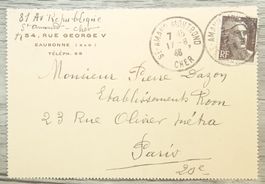 81 Av République
St Amand - Cher -
54, RUE GEORGE V
EAUBONNE (S&O)
TÉLÉPH. 68
ST AMAND-MONTROND
7
46
CHER
RF
Monsieur Pierre Dazon
Etablissements Roon
23 Rue Olivier Métra
Paris
20e